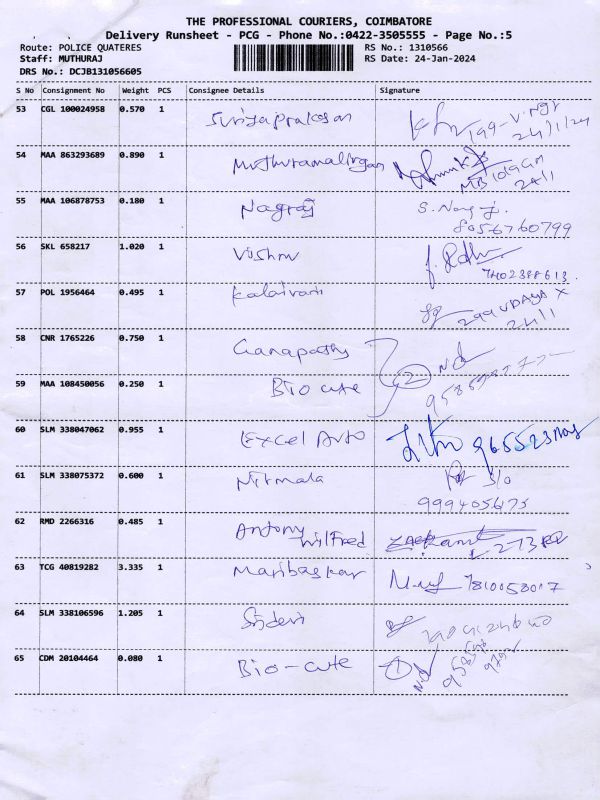 THE PROFESSIONAL COURIERS, COIMBATORE
Delivery Runsheet - PCG - Phone No.:0422-3505555 - Page No.:5
Route: POLICE QUATERES RS No.: 1310566
Staff: MUTHURAJ RS Date: 24-Jan-2024
DRS No.: DCJB131056605
S No Consignment No Weight PCS Consignee Details Signature
53 CGL 100024958 0.570 1 Suriyaprakasan
24/1/24
54 MAA 863293689 0.890 1 Muthuramalingan
24/1
55 MAA 106878753 0.180 1 Nagraj
8056760799
56 SKL 658217 1.020 1 Vishnu
7402388613
57 POL 1956464 0.495 1 Kalaivani
24/1
58 CNR 1765226 0.750 1 Ganapathy
59 MAA 108450056 0.250 1 Bio cute 2
60 SLM 338047062 0.955 1 Excel Auto
61 SLM 338075372 0.600 1 Nirmala S/o
999405675
62 RMD 2266316 0.485 1 Antony
Wilfred
63 TCG 40819282 3.335 1 Maribaskar 7810058017
64 SLM 338106596 1.205 1 Sridevi
65 CDM 20104464 0.080 1 Bio-cute 1